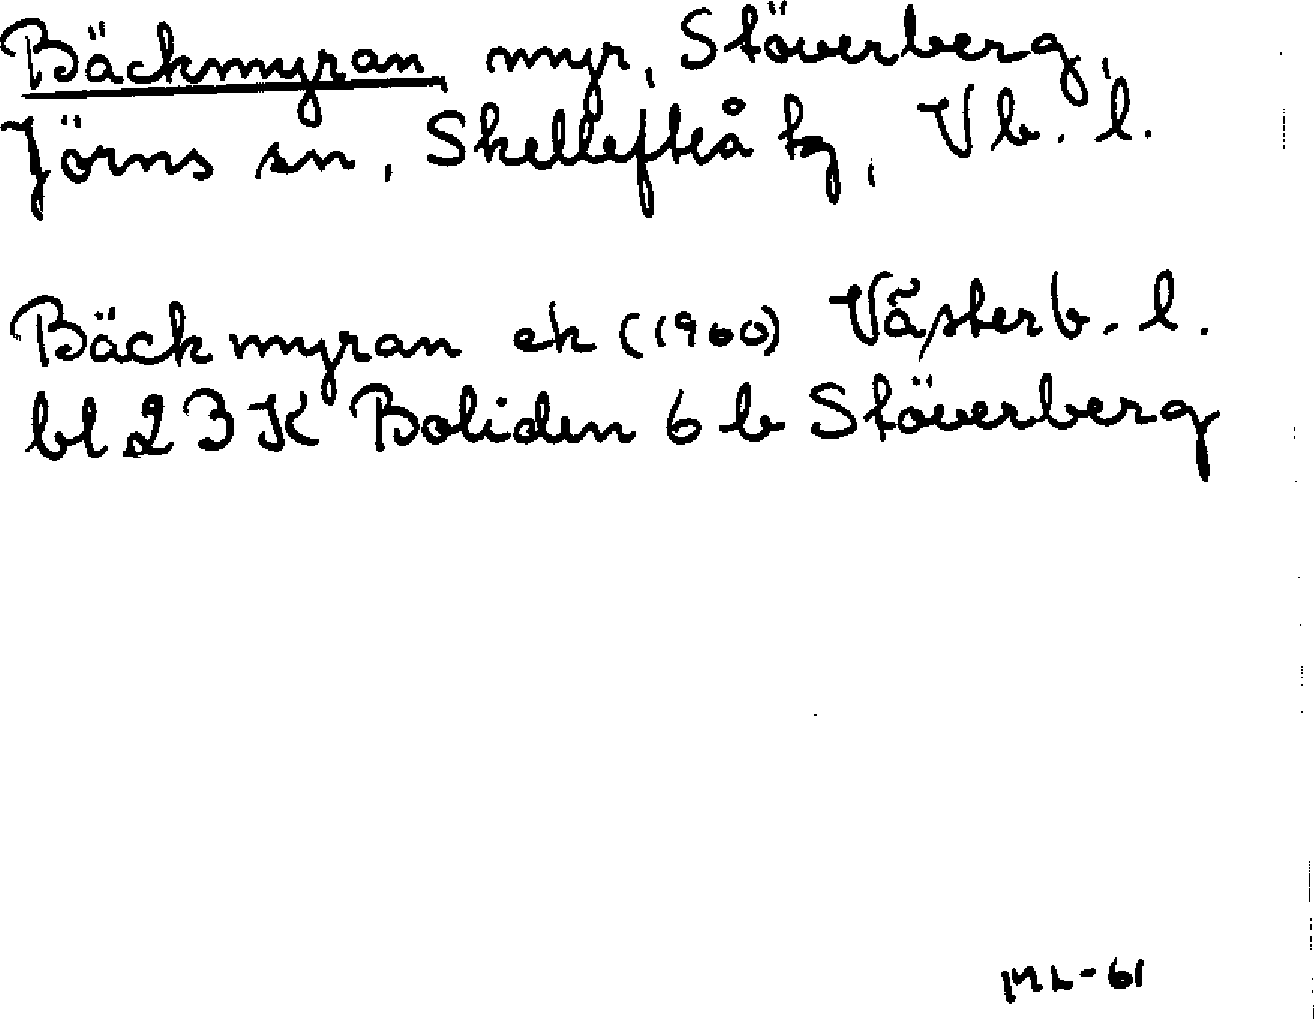 Bäckmyran, myr, Stöverberg,
Jörns sn, Skellefteå tg, Vb. l.
Bäckmyran ek (1960) Västerb. l.
bl 23K Boliden 6 b Stöverberg
ML-61